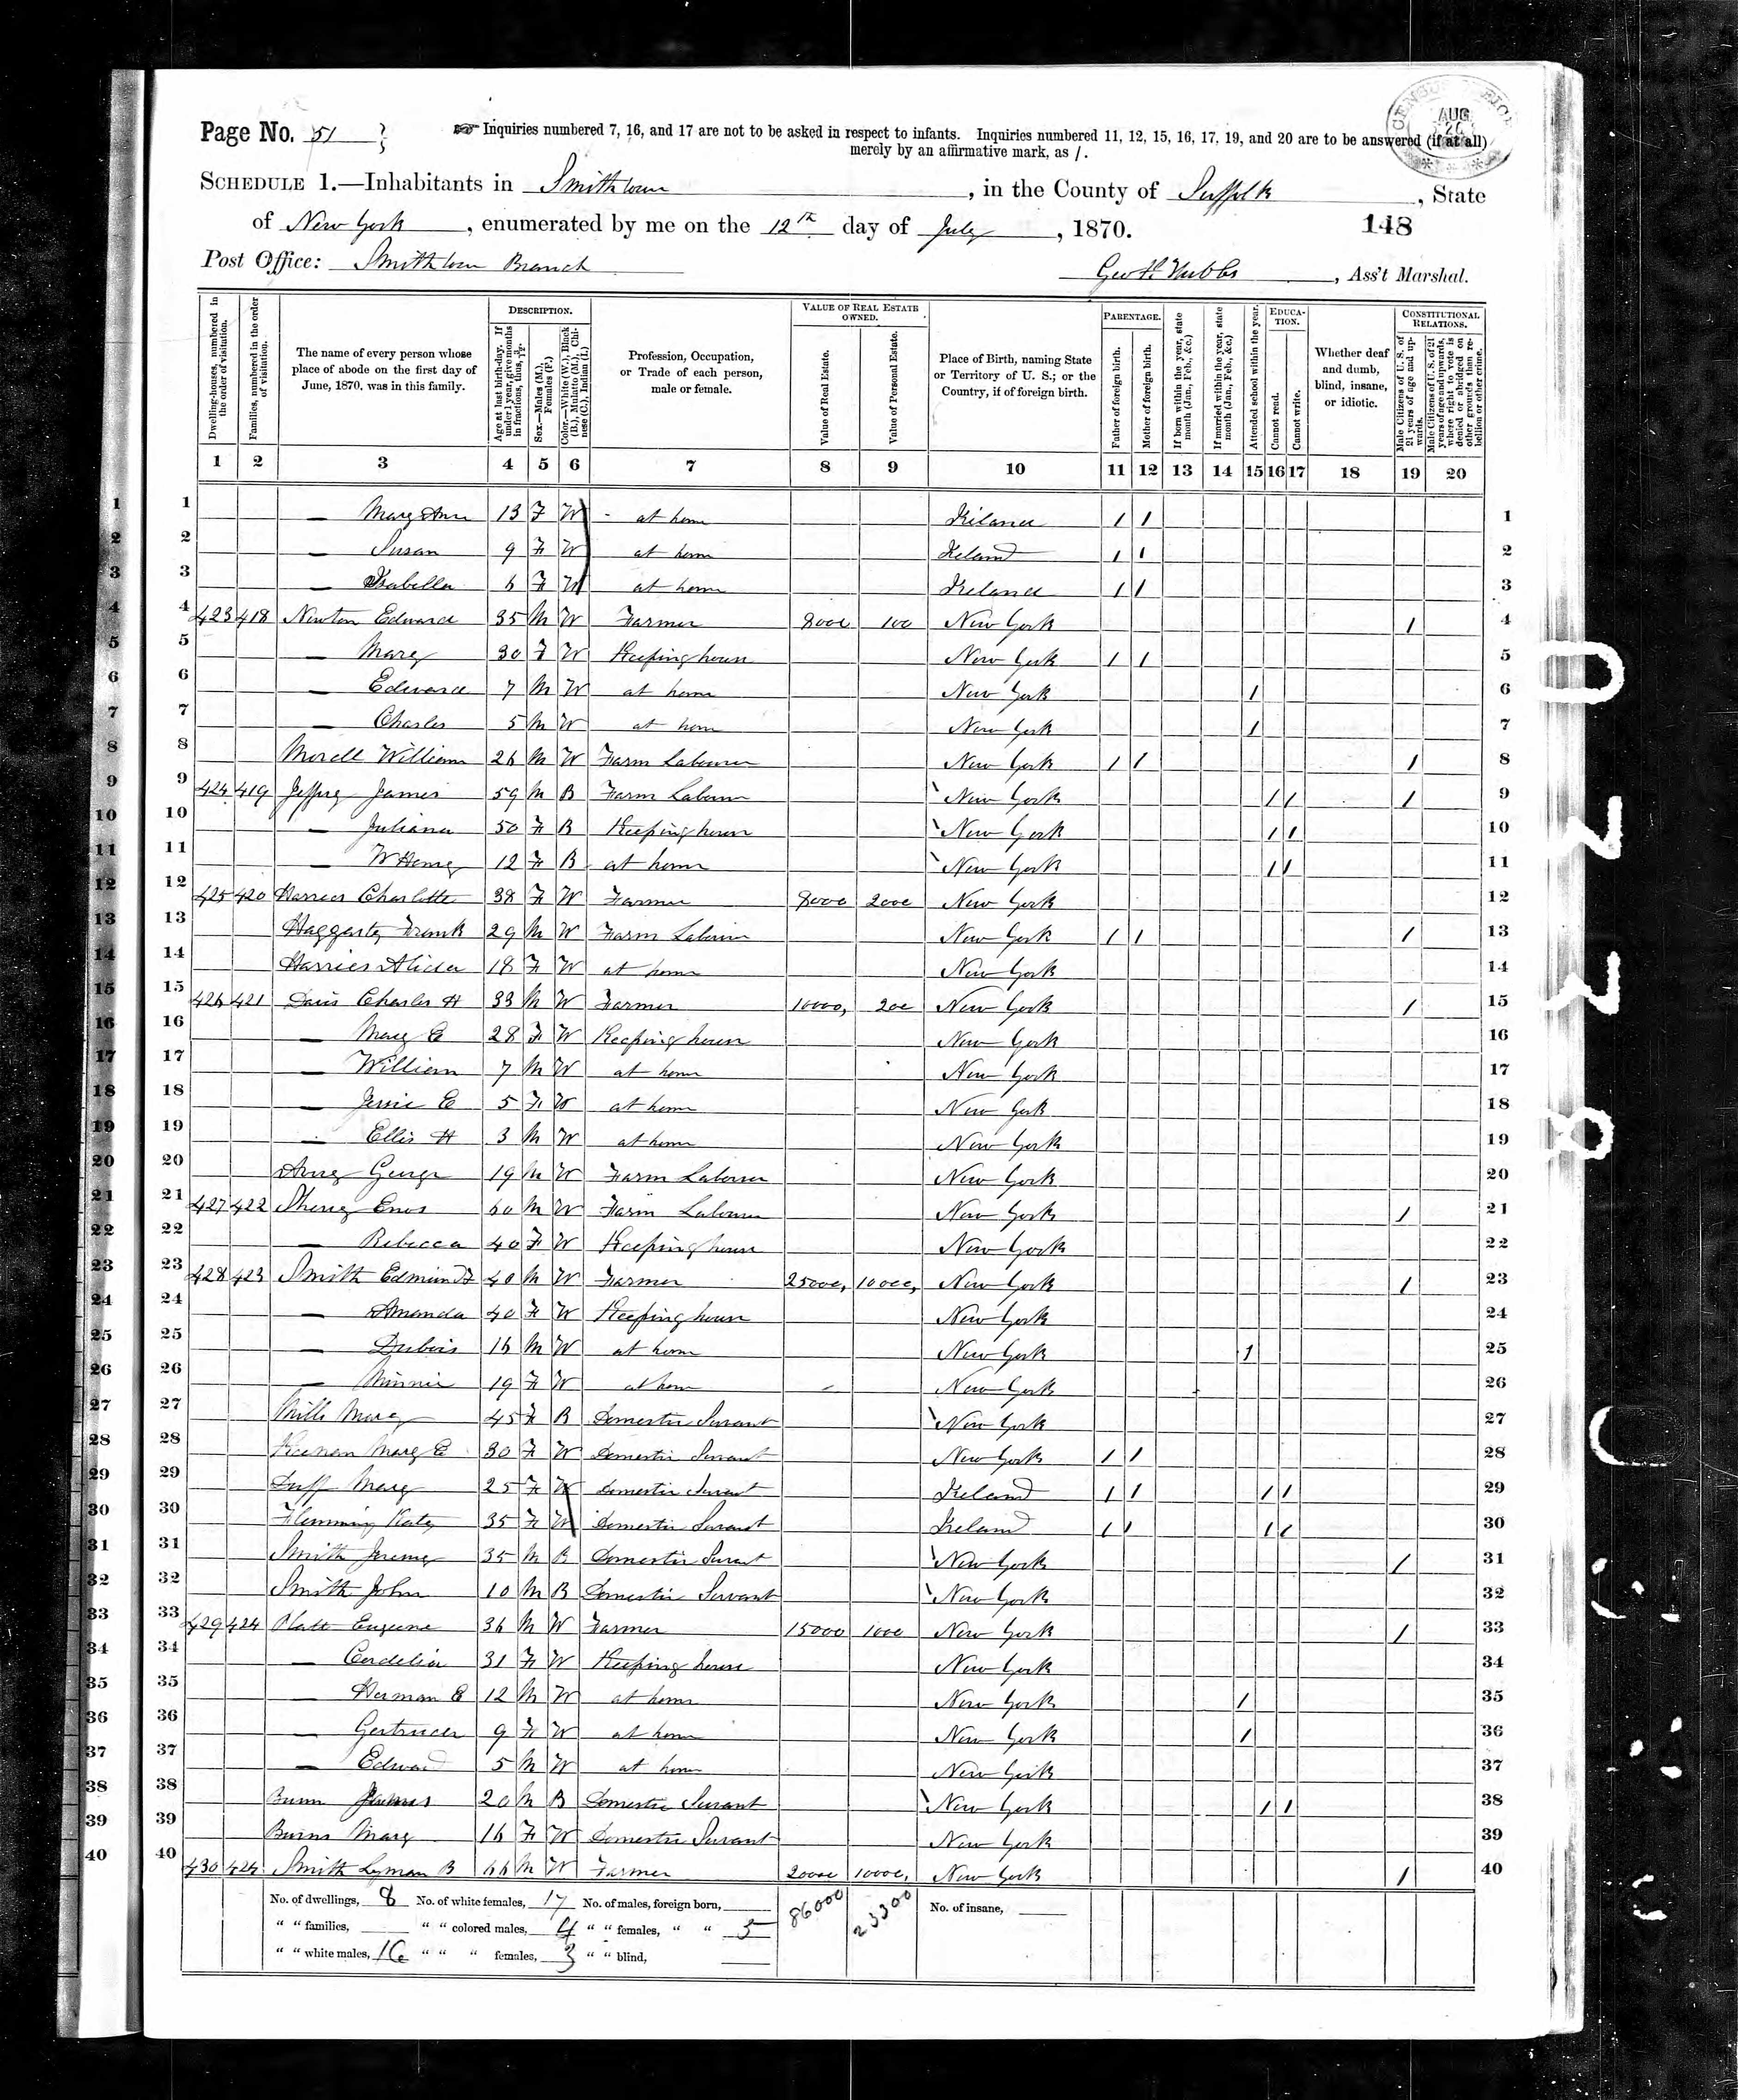 CENSUS OFFICE AUG 26
Page No. 51
☞ Inquiries numbered 7, 16, and 17 are not to be asked in respect to infants. Inquiries numbered 11, 12, 15, 16, 17, 19, and 20 are to be answered (if at all)
merely by an affirmative mark, as /.
SCHEDULE 1.—Inhabitants in Smithtown, in the County of Suffolk, State
of New York, enumerated by me on the 12th day of July, 1870.
148
Post Office: Smithtown Branch
Geo H, Ass't Marshal.
Dwelling-houses, numbered in the order of visitation.
Families, numbered in the order of visitation.
The name of every person whose place of abode on the first day of June, 1870, was in this family.
DESCRIPTION.
Age at last birth-day. If under 1 year, give months in fractions, thus, 3/12.
Sex.—Males (M.), Females (F.)
Color.—White (W.), Black (B.), Mulatto (M.), Chinese (C.), Indian (I.)
Profession, Occupation, or Trade of each person, male or female.
VALUE OF REAL ESTATE OWNED.
Value of Real Estate.
Value of Personal Estate.
Place of Birth, naming State or Territory of U. S.; or the Country, if of foreign birth.
PARENTAGE.
Father of foreign birth.
Mother of foreign birth.
If born within the year, state month (Jan., Feb., &c.)
If married within the year, state month (Jan., Feb., &c.)
Attended school within the year.
EDUCATION.
Cannot read.
Cannot write.
Whether deaf and dumb, blind, insane, or idiotic.
CONSTITUTIONAL RELATIONS.
Male Citizens of U. S. of 21 years of age and upwards.
Male Citizens of U. S. of 21 years of age and upwards, where right to vote is denied or abridged on other grounds than rebellion or other crime.
1 2 3 4 5 6 7 8 9 10 11 12 13 14 15 16 17 18 19 20
1 — Mary Ann 13 F W at home Ireland / / 1
2 — Susan 9 F W at home Ireland / / 2
3 — Isabella 6 F W at home Ireland / / 3
4 423 418 Newton Edward 35 M W Farmer 8000 100 New York / 4
5 — Mary 30 F W Keeping house New York / / 5
6 — Edward 7 M W at home New York / 6
7 — Charles 5 M W at home New York / 7
8 Morell William 26 M W Farm Laborer New York / / / 8
9 424 419 Jeffrey James 59 M B Farm Laborer New York / / / 9
10 — Juliana 50 F B Keeping house New York / / 10
11 — W Henry 12 F B at home New York / / 11
12 425 420 Harries Charlotte 38 F W Farmer 8000 2000 New York 12
13 Haggarty Frank 29 M W Farm Laborer New York / / / 13
14 Harries Alicia 18 F W at home New York 14
15 426 421 Davis Charles H 33 M W Farmer 10000, 200 New York / 15
16 — Mary E 28 F W Keeping house New York 16
17 — William 7 M W at home New York 17
18 — Jessie E 5 F W at home New York 18
19 — Ellis H 3 M W at home New York 19
20 George 19 M W Farm Laborer New York 20
21 427 422 Sherry Enos 60 M W Farm Laborer New York / 21
22 — Rebecca 40 F W Keeping house New York 22
23 428 423 Smith Edmund 40 M W Farmer 25000, 10000, New York / 23
24 — Amanda 40 F W Keeping house New York 24
25 — Dubois 16 M W at home New York / 25
26 — Minnie 19 F W at home New York 26
27 Mills Mary 45 F B Domestic Servant New York 27
28 Keenan Mary E 30 F W Domestic Servant New York / / 28
29 Duff Mary 25 F W Domestic Servant Ireland / / / / 29
30 Flemming Katy 35 F W Domestic Servant Ireland / / / / 30
31 Smith Jeremy 35 M B Domestic Servant New York / 31
32 Smith John 10 M B Domestic Servant New York 32
33 429 424 Platt Eugene 36 M W Farmer 15000 1000 New York / 33
34 — Cordelia 31 F W Keeping house New York 34
35 — Herman E 12 M W at home New York / 35
36 — Gertrude 9 F W at home New York / 36
37 — Edward 5 M W at home New York 37
38 James 20 M B Domestic Servant New York / / 38
39 Burns Mary 16 F W Domestic Servant New York 39
40 430 424 Smith Lyman B 66 M W Farmer 20000 10000, New York / 40
No. of dwellings, 8 No. of white females, 17 No. of males, foreign born, 86000 23300 No. of insane,
" " families, " " colored males, 4 " " females, " " 5
" " white males, 16 " " " females, 3 " " blind,